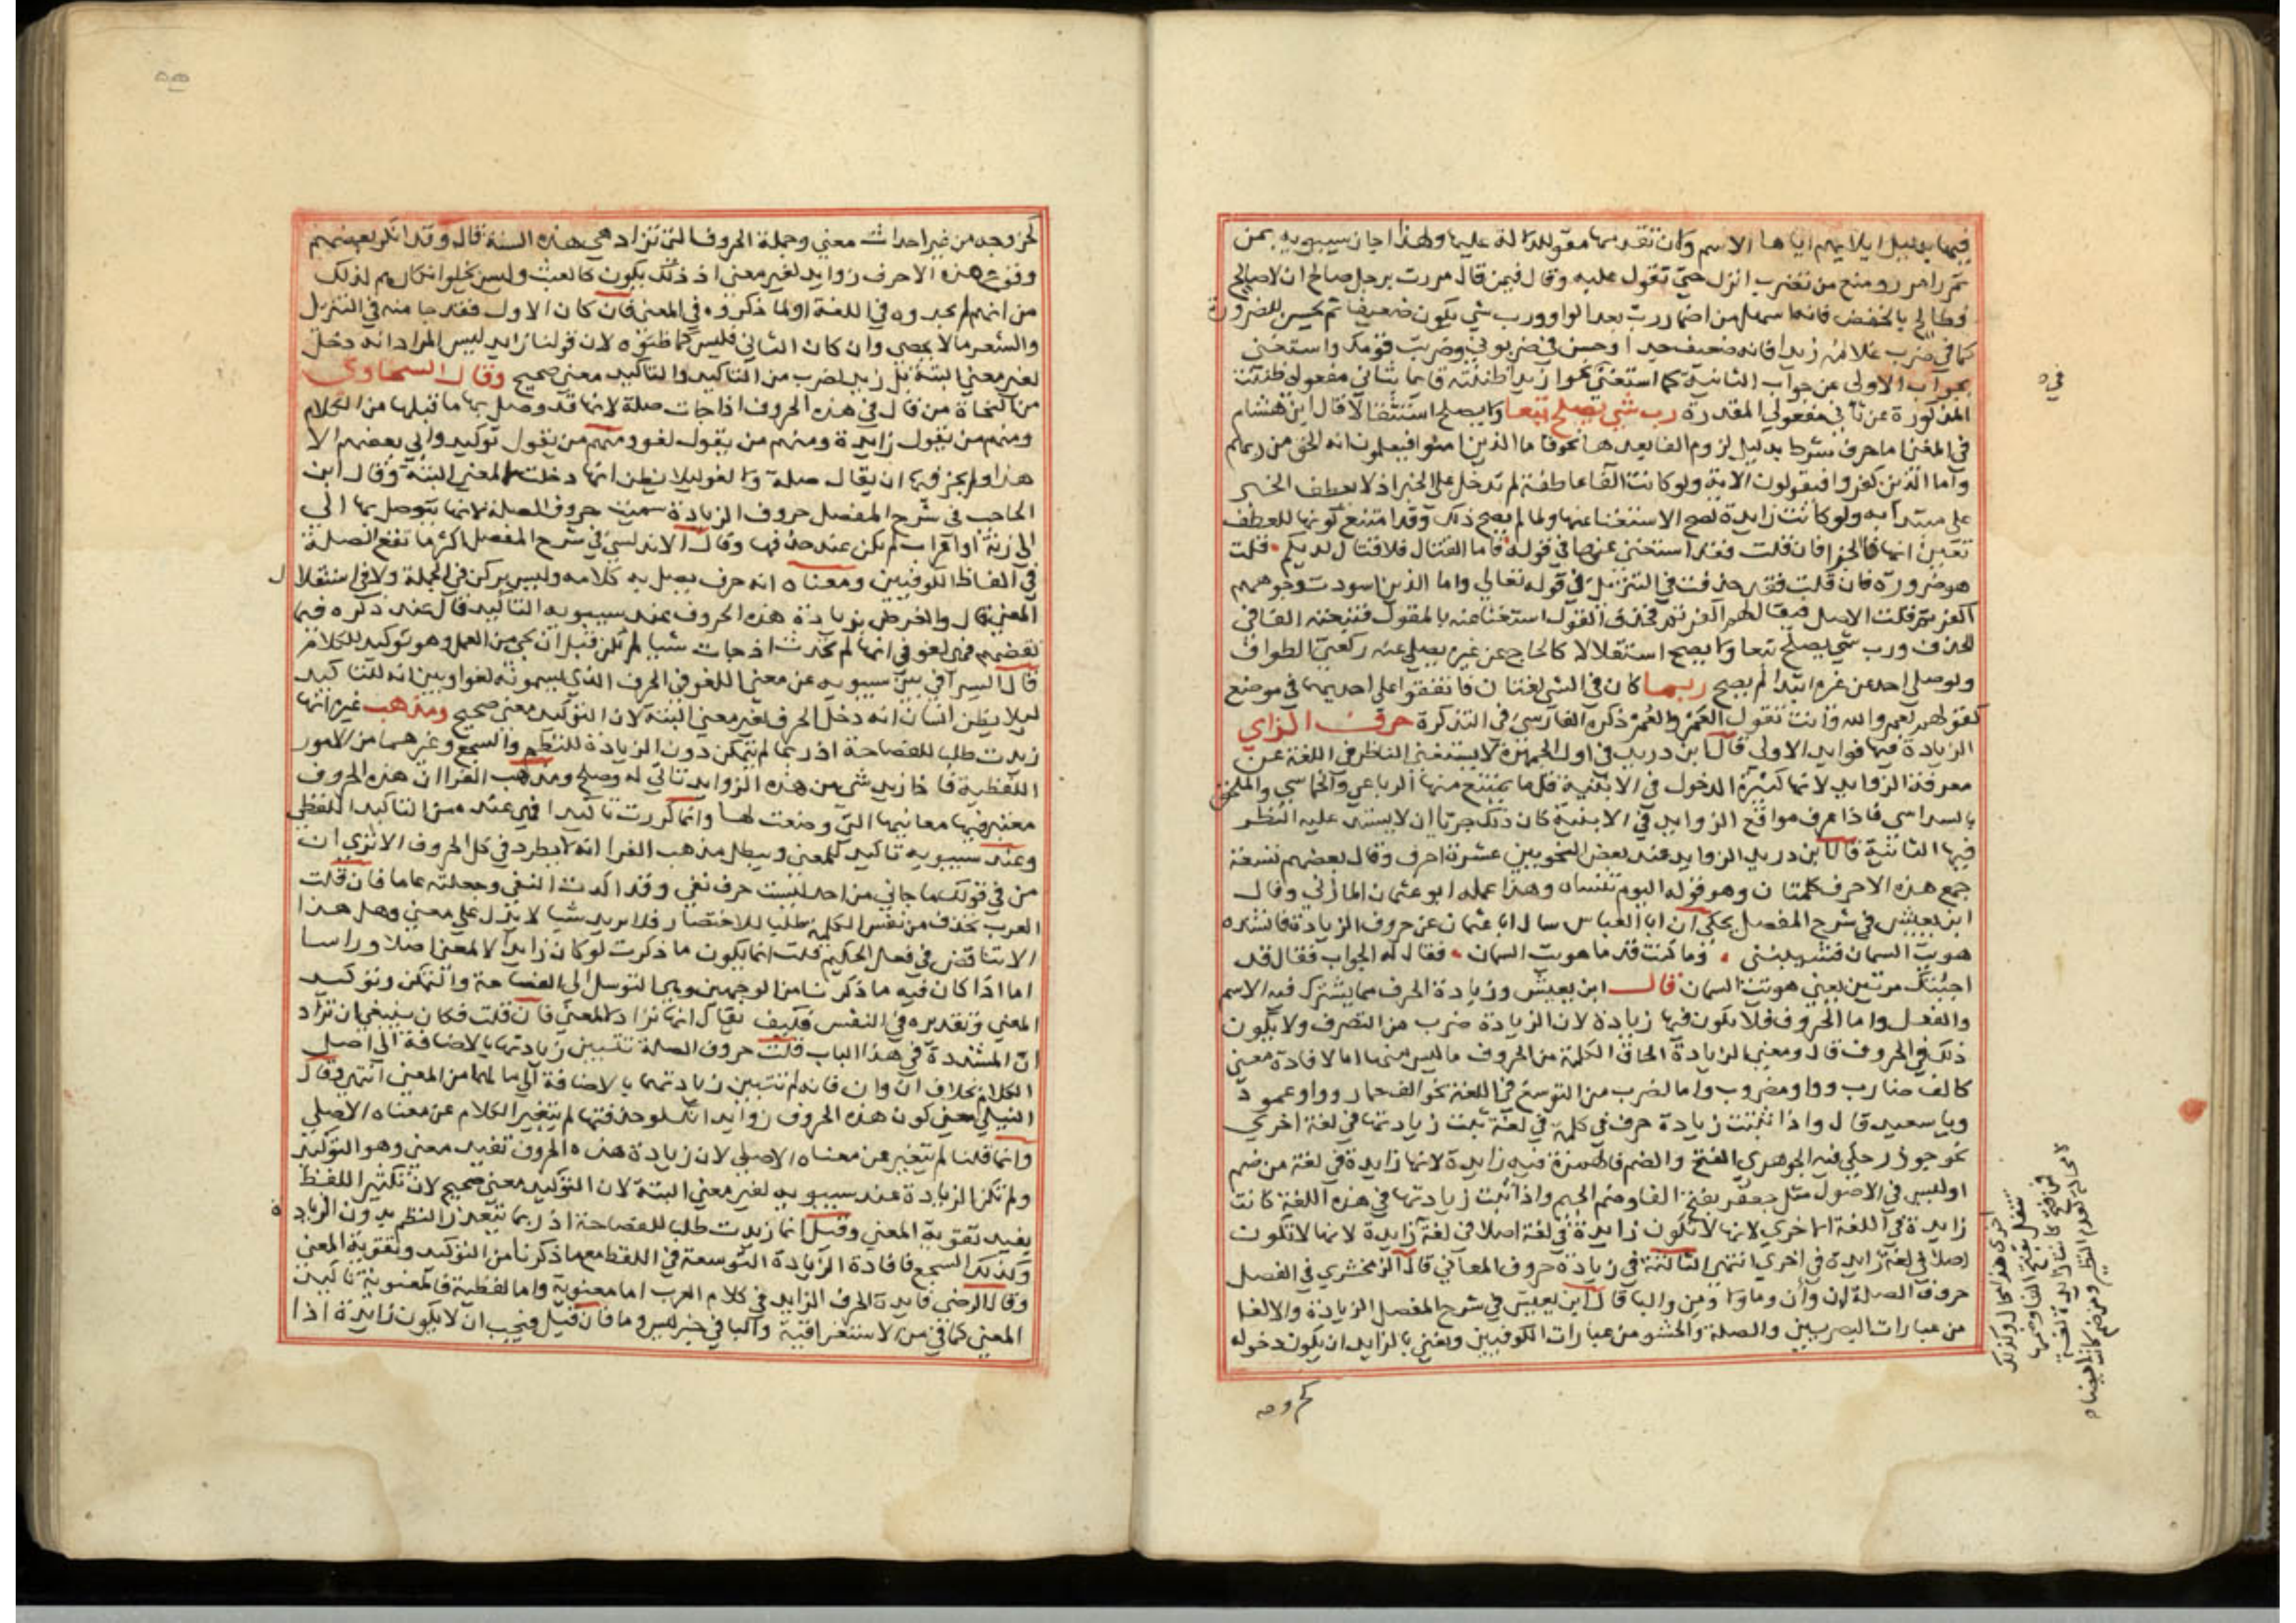 فيها بدليل ايلايهم اياها الاسم وكان تقدمها مقو للدلالة عليها ولهذا اجاز سيبويه بمن
تمرر امرر ومنع من تضرب انزل حتى تقول عليه وقال فيمن قال مررت برجل صالح ان لا صالح
فطالح بالخفض فانه اسهل من اضمار رب بعد الواو ورب شي يكون ضعيفا ثم يحسن للضرورة
كما في ضرب غلامه زيدا فانه ضعيف جدا وحسن في ضربوني وضربت قومك واستغنى
بجواب الاولى عن جواب الثانية كما استغنى نحو ازيدا ظننته قايما بثاني مفعولي ظننت
المذكورة عن ثاني مفعولي المقدرة رب شي يصلح تبعا ولا يصلح استقلالا قال ابن هشام
في المغنى اما حرف شرط بدليل لزوم الفا بعدها نحو فاما الذين امنوا فيعلمون انه الحق من ربهم
واما الذين كفروا فيقولون الاية ولو كانت الفا عاطفة لم تدخل على الخبر اذ لا يعطف الخبر
على مبتدأيه ولو كانت زايدة لصح الاستغنا عنها ولما لم يصح ذلك وقد امتنع كونها للعطف
تعين انها فا الجزا فان قلت فقد استغنى عنها في قوله فاما القتال لا قتال لديكم قلت
هو ضرورة فان قلت فقد حذفت في التنزيل في قوله تعالى واما الذين اسودت وجوههم
اكفرتم قلت الاصل فيقال لهم اكفرتم فحذف القول استغنا عنه بالمقول فتبعته الفا في
الحذف ورب شي يصلح تبعا ولا يصح استقلالا كالحاج عن غيره يصلي عنه ركعتي الطواف
ولو صلى احد عن غيره ابتدا لم يصح ربما كان في الشي لغتان فاتفقوا على احديهما في موضع
كقولهم لعمر والله وانت تقول العَمر والعُمر ذكره الفارسي في التذكرة حرف الزاي
الزيادة فيها فوايد الاولى قال ابن دريد في اول الجمهرة لا يستغني الناظر في اللغة عن
معرفة الزوايد لانها كثيرة الدخول في الابنية قلما يمتنع منها الرباعي والخماسي والملحق
بالسداسي فاذا عرف مواقع الزوايد في الابنية كان ذلك حريا ان لا يستد عليه النظر
فيها الثانية قال ابن دريد الزوايد عند بعض النحويين عشرة احرف وقال بعضهم تسعة
جمع هذه الاحرف كلمتان وهو قوله اليوم تنساه وهذا عمله ابو عثمان المازني وقال
ابن يعيش في شرح المفصل يحكى ان ابا العباس سال ابا عثمان عن حروف الزيادة فانشده
هويت السمان فشيبنني وما كنت قد ما هويت السمان فقال له الجواب فقال قد
اجبتك مرتين يعني هويت السمان قال ابن يعيش وزيادة الحرف مما يشترك فيه الاسم
والفعل واما الحروف فلا يكون فيها زيادة لان الزيادة ضرب من التصرف ولا يكون
ذلك في الحروف قال ومعنى الزيادة الحاق الكلمة من الحروف ما ليس منها اما لافادة معنى
كالف ضارب وواو مضروب واما لضرب من التوسع في اللغة نحو الف حمار وواو عمود
ويا سعيد قال واذا ثبتت زيادة حرف في كلمة في لغة ثبت زيادتها في لغة اخرى
نحو جوذر حكى فيه الجوهري الفتح والضم فالهمزة فيه زايدة لانها زايدة في لغة من ضم
اوليس في الاصول مثل جعفر بفتح الفا وضم الجيم واذا ثبت زيادتها في هذه اللغة كانت
زايدة في اللغة الاخرى لانها لا تكون زايدة في لغة اصلا في لغة زايدة لانها لا تكون
اصلا في لغة زايدة في اخرى انتهى الثالثة في زيادة حروف المعاني قال الزمخشري في الفصل
حروف الصلة ان وأن وما ولا ومن والبا قال ابن يعيش في شرح المفصل الزيادة والالغا
من عبارات البصريين والصلة والحشو من عبارات الكوفيين ويعني بالزايد ان يكون دخوله
كخروجه
لخروجه من غير احداث معنى وجملة الحروف التي تزاد هي هذه الستة قال وقد انكر بعضهم
وقوع هذه الاحرف زوايد لغير معنى اذ ذلك يكون كالعبث وليس يخلوا انكارهم لذلك
من انهم لم يجدوه في اللغة او لما ذكروه في المعنى فان كان الاول فقد جا منه في التنزيل
والشعر ما لا يحصى وان كان الثاني فليس كما ظنوه لان قولنا زايد ليس المراد انه دخل
لغير معنى البتة بل زيد لضرب من التاكيد والتاكيد معنى صحيح وقال السخاوي
من النحاة من قال في هذه الحروف اذا جات صلة لانها قد وصل بها ما قبلها من الكلام
ومنهم من يقول زايدة ومنهم من يقول لغو ومنهم من يقول توكيد وابى بعضهم الا
هذا ولم يجز فيها ان يقال صلة ولا لغو ليلا يظن انها دخلت لا لمعنى البتة وقال ابن
الحاجب في شرح المفصل حروف الزيادة سميت حروف الصلة لانها يتوصل بها الى
الى زنة او اعراب لم يكن عند حذفها وقال الاندلسي في شرح المفصل اكثر ما تقع الصلة
في الفاظ الكوفيين ومعناه انه حرف يصل به كلامه وليس بركن في الجملة ولا في استقلال
المعنى قال والغرض بزيادة هذه الحروف عند سيبويه التاكيد قال عند ذكره فبما
نقضهم فهي لغو في انها لم تحدث اذ جات شيا لم يكن قبل ان تجي من العمل وهو توكيد للكلام
قال السيرافي بين سيبويه عن معنى اللغو في الحرف الذي يسمونه لغوا وبين انه للتاكيد
ليلا يظن انسان انه دخل الحرف لغير معنى البتة لان التوكيد معنى صحيح ومذهب غيره انها
زيدت طلبا للفصاحة اذ ربما لم يتمكن دون الزيادة للنظم والسجع وغيرهما من الامور
اللفظية فاذا زيد شي من هذه الزوايد تاتى له وصلح ومذهب الفرا ان هذه الحروف
معتبر فيها معانيها التي وضعت لها وانما كررت تاكيدا فهي عنده من التاكيد اللفظي
وعند سيبويه تاكيد للمعنى ويبطل مذهب الفرا انه لا يطرد في كل الحروف الا ترى ان
من في قولك ما جاني من احد ليست حرف نفي وقد اكدت النفي وجعلته عاما فان قلت
العرب تحذف من نفس الكلمة طلبا للاختصار فلا تريد شيا لا يدل على معنى وهل هذا
الا تناقض في فعل الحكيم قلت انما يكون ما ذكرت لو كان زايدا لا لمعنى اصلا وراسا
اما اذا كان فيه ما ذكرنا من الوجهين وهما التوسل الى الفصاحة والتمكن وتوكيد
المعنى وتقديره في النفس فكيف يقال انها تزاد لا لمعنى فان قلت فكان ينبغي ان تزاد
انّ المشددة في هذا الباب قلت حروف الصلة تتبين زيادتها بالاضافة الى اصل
الكلام بخلاف ان وان فانه لم تتبين زيادتهما بالاضافة الى ما لهما من المعنى انتهى وقال
النيلي معنى كون هذه الحروف زوايد انك لو حذفتها لم يتغير الكلام عن معناه الاصلي
وانما قلنا لم يتغير عن معناه الاصلي لان زيادة هذه الحروف تفيد معنى وهو التوكيد
ولم تكن الزيادة عند سيبويه لغير معنى البتة لان التوكيد معنى صحيح لان تكثير اللفظ
يفيد تقوية المعنى وقيل انما زيدت طلبا للفصاحة اذ ربما يتعذر النظم بدون الزيادة
وكذلك السجع فافادة الزيادة التوسعة في اللفظ مع ما ذكرنا من التوكيد وتقوية المعنى
وقال الرضي فايدة الحرف الزايد في كلام العرب اما معنوية واما لفظية فالمعنوية تاكيد
المعنى كما في من الاستغراقية والبا في خبر ليس وما فان قيل فيجب ان لا يكون زايدة اذا